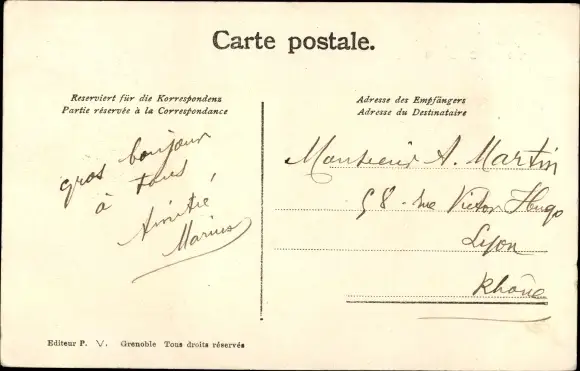 Carte postale.
Reserviert für die Korrespondenz
Partie réservée à la Correspondance
gros bonjour
à tous,
Amitié
Marius
Adresse des Empfängers
Adresse du Destinataire
Monsieur A. Martin
58 rue Victor Hugo
Lyon
Rhône
Editeur P. V. Grenoble Tous droits réservés